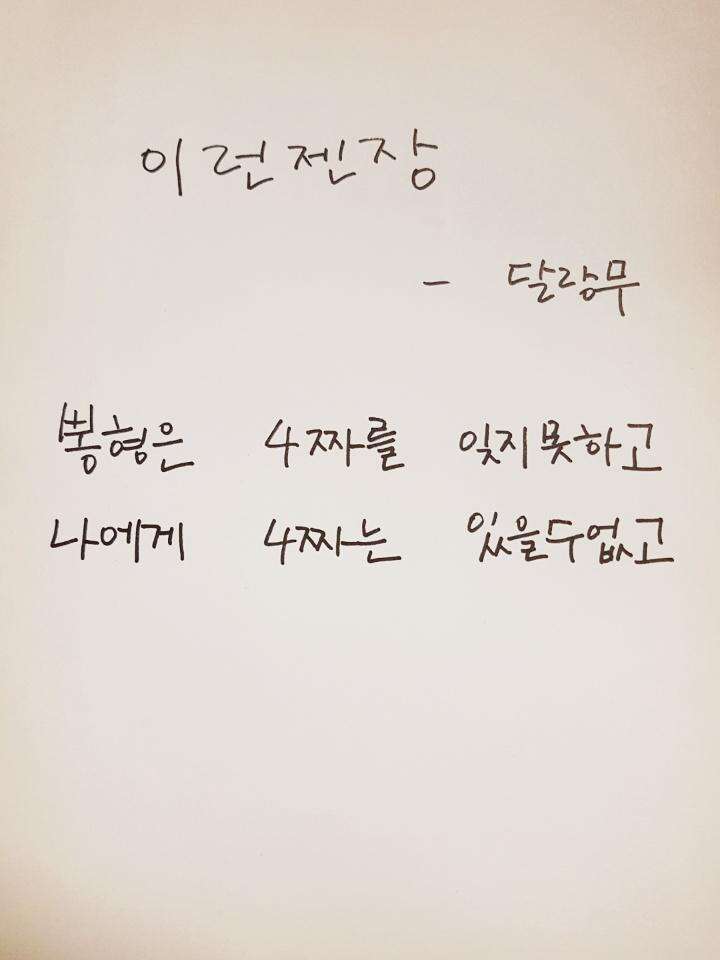 이런젠장
- 달랑무
뽕형은 4짜를 잊지못하고
나에게 4짜는 있을수없고